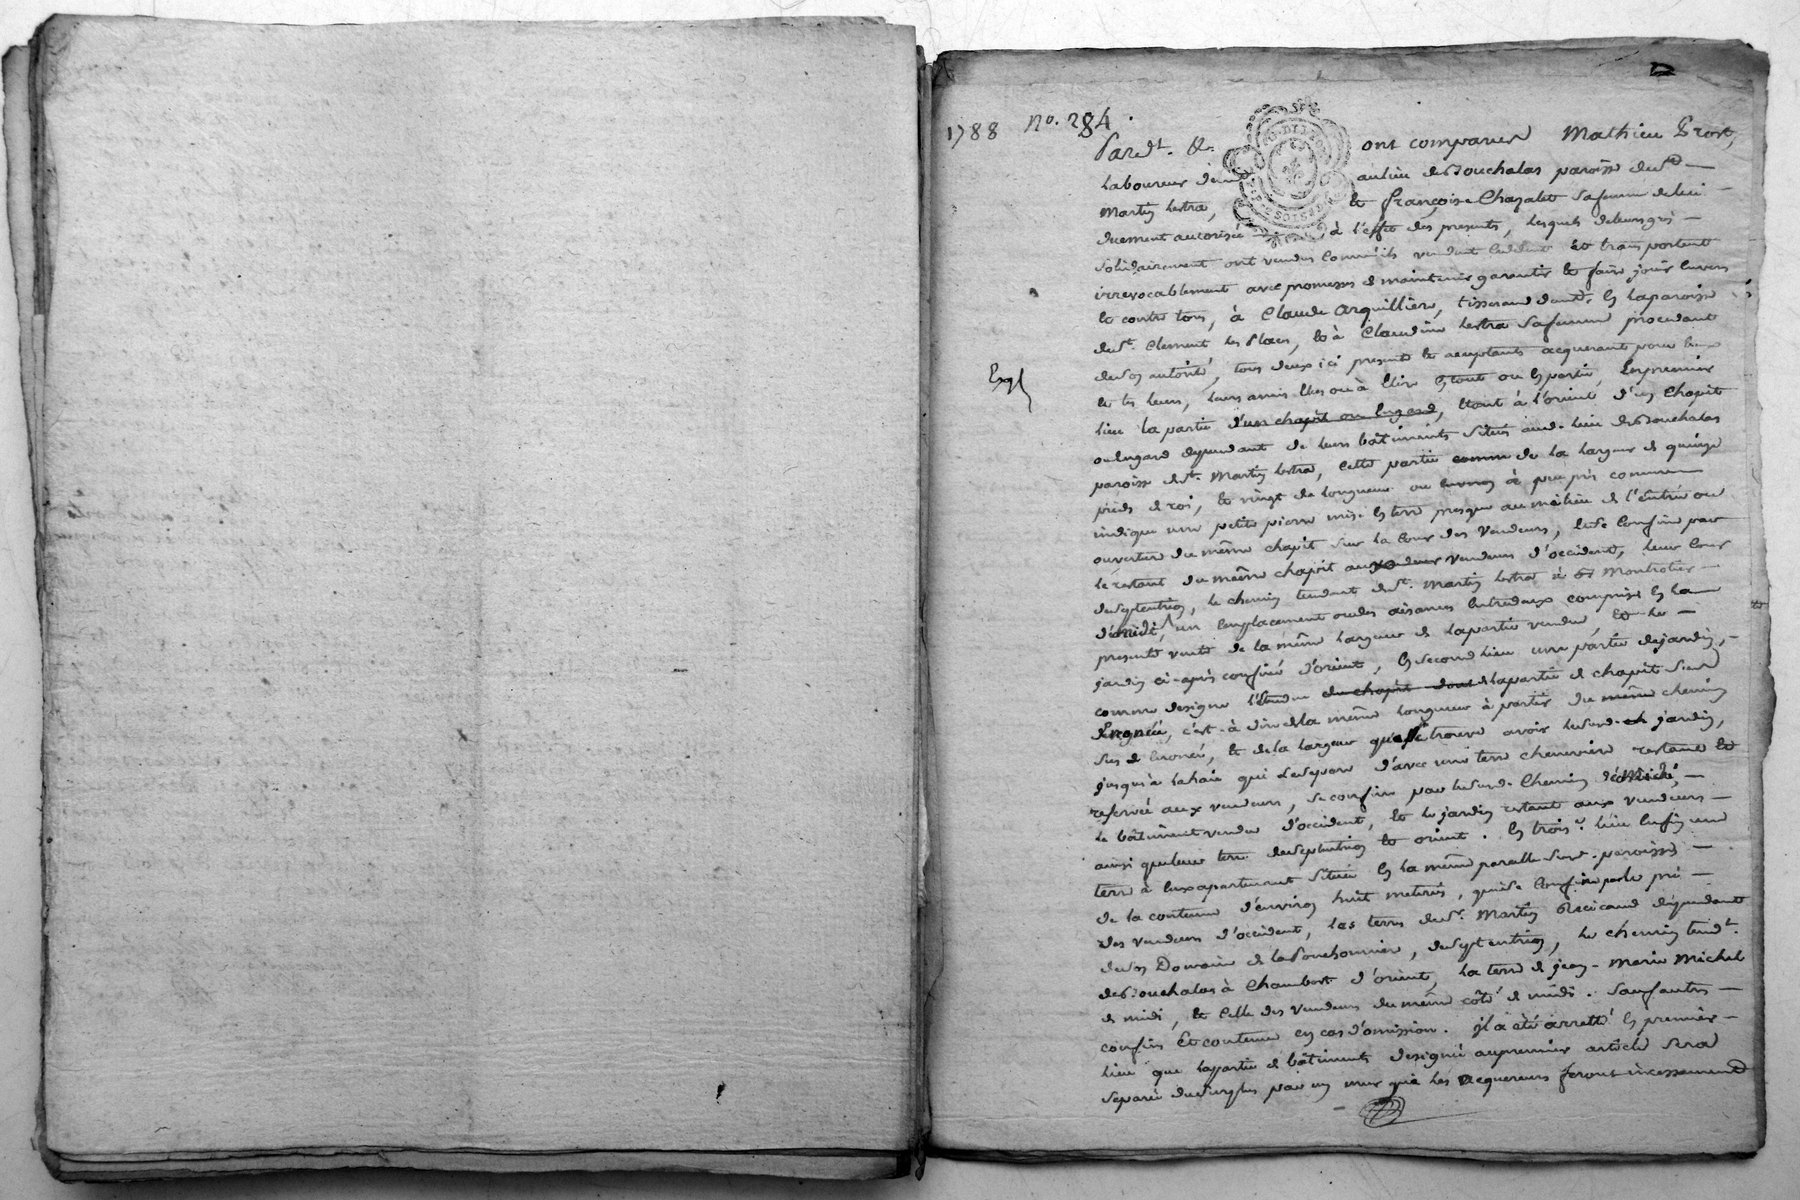 1788 No. 284.
Pardt. &c. ont comparus Mathieu Brost,
laboureur demt au lieu de Bouchalas paroisse de St
Martin Lestra, et françoise Chazalet sa femme de lui
duement autorisée à l'effet des presents, lesquels de leurs grés
solidairement ont vendus comm'ils vendent cedent et transportent
irrevocablement avec promesses de maintenir garantir et faire jouir envers
et contre tous, à Claude Arquilliere, tisserand demt. en la paroisse
de St. Clement les Places, et à Claudine Lestra sa femme procedant
de son autorité, tous deux ici presents et acceptants acquerant pour eux
Expé
et les leurs, leurs amis elus ou à elire en tout ou en partie, En premier
lieu la partie d'un chapit ou engard, etant à l'orient d'un chapit
ou engard dependant de leurs bâtiments situés aud. lieu de Bouchalas
paroisse de St. Martin Lestra, cette partie comme de la largeur de quinze
pieds de roi, et vingt de longueur ou environ à peu près comme
indique une petite pierre mise en terre presque au milieu de l'entrée ou
ouverture du même chapit sur la cour des vendeurs, et se confine par
le restant du même chapit aux vendeurs d'occident, leur cour
de septentrion, le chemin tendant de St. Martin Lestra à Montrotier
d'midi, un emplacement ou des aisances entredeux comprises en la
presente vente de la même largeur de la partie vendue, et le
jardin ci-après confiné d'orient, En second lieu une partie de jardin,
comme designe l'étendue du chapit dont de la partie de chapit sus
designée, c'est-à-dire de la même longueur à partir du même chemin
sus énoncé, et de la largeur que se trouve avoir led. jardin,
jusqu'à la haie qui le separe d'avec une terre cheneviere restante et
reservée aux vendeurs, se confine par le susd. chemin de midi,
le bâtiment vendu d'occident, et le jardin restant aux vendeurs
ainsi que leur terre de septentrion et orient. En trois.e lieu enfin une
terre à eux apartenant située en la même parcelle susd. paroisse
de la contenue d'environ huit meterées, qui se confine par le pré
des vendeurs d'occident, les terres de Sr. Martin Recicaud dependant
de son Domaine de la Ponchonniere, de septentrion, le chemin tendt.
de Bouchalas à Chambost d'orient, la terre de jean-Marie Michel
de midi, et celle des vendeurs du même côté de midi. Sauf autres
confins et contenue en cas d'omission. Il a été arretté en premier
lieu que la partie de bâtiments designée au premier article sera
separée du surplus par un mur que les acquereurs feront incessamment